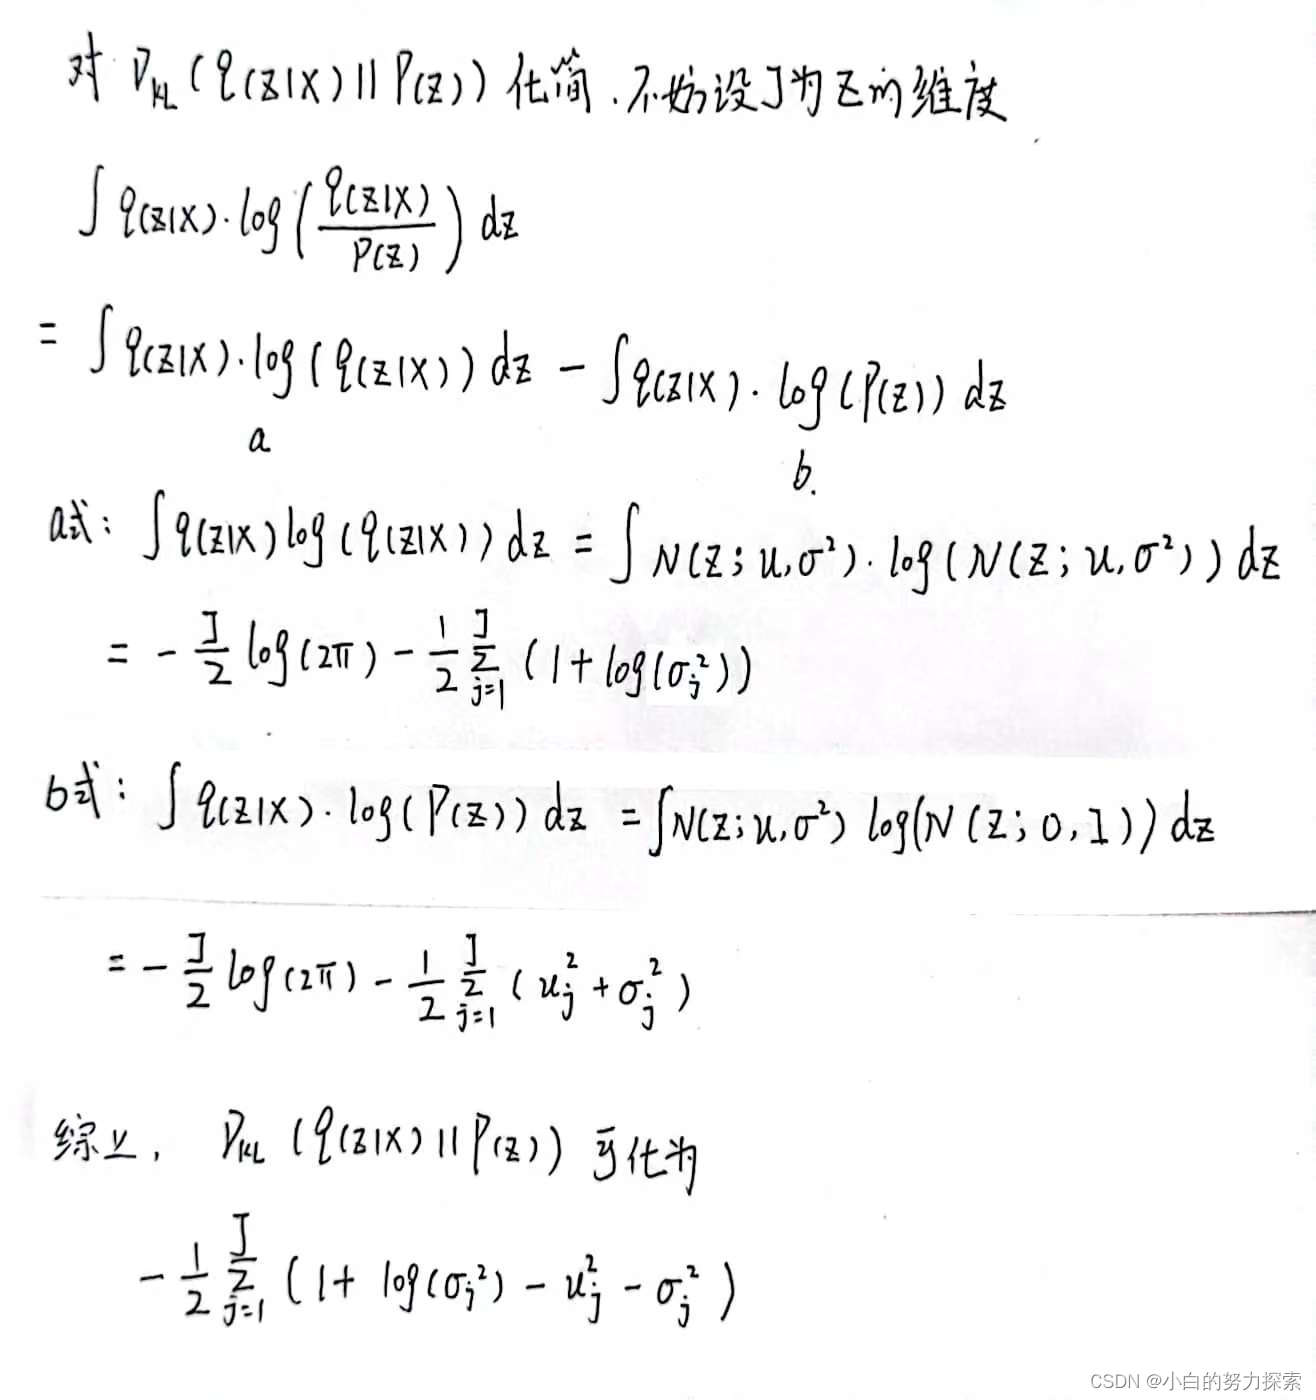 对 D_KL (q(z|x) || P(z)) 化简. 不妨设J为Z的维度
∫ q(z|x)·log( q(z|x) / P(z) ) dz
= ∫ q(z|x)·log(q(z|x)) dz - ∫ q(z|x)·log(P(z)) dz
a
b.
a式: ∫ q(z|x) log(q(z|x)) dz = ∫ N(z; u, σ²)·log(N(z; u, σ²)) dz
= - J/2 log(2π) - 1/2 Σ_{j=1}^{J} (1 + log(σ_j²))
b式: ∫ q(z|x)·log(P(z)) dz = ∫ N(z; u, σ²) log(N(z; 0, I)) dz
= - J/2 log(2π) - 1/2 Σ_{j=1}^{J} (u_j² + σ_j²)
综上, D_KL (q(z|x) || P(z)) 可化为
- 1/2 Σ_{j=1}^{J} (1 + log(σ_j²) - u_j² - σ_j²)
CSDN @小白的努力探索